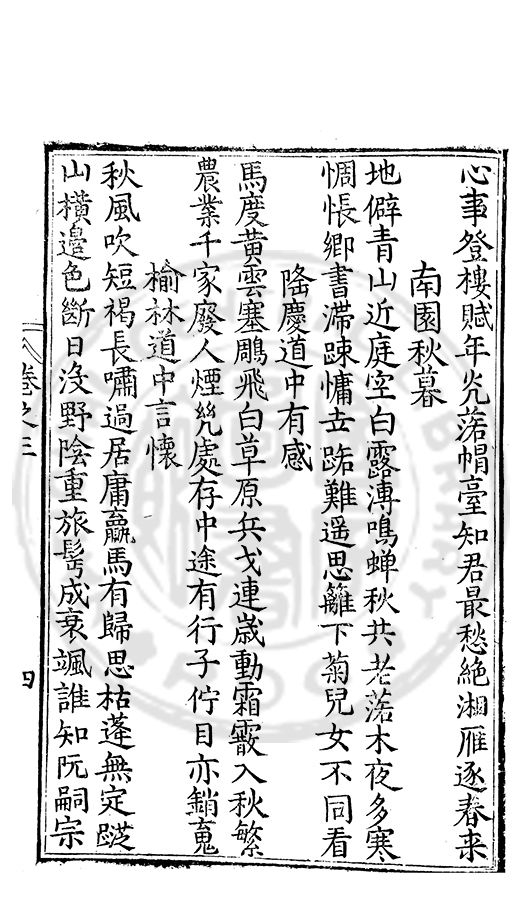 心事登樓賦年光落帽臺知君最愁絶湘雁逐春来
南園秋暮
地僻青山近庭空白露漙鳴蝉秋共老落木夜多寒
惆悵鄉書滯踈慵世路難遥思籬下菊兒女不同看
隆慶道中有感
馬度黄雲塞鵰飛白草原兵戈連歳動霜霰入秋繁
農業千家廢人煙幾處存中途有行子佇目亦銷䰟
榆林道中言懷
秋風吹短褐長嘯過居庸羸馬有歸思枯蓬無定蹤
山横邉色斷日没野陰重旅髩成衰颯誰知阮嗣宗
卷之三
四